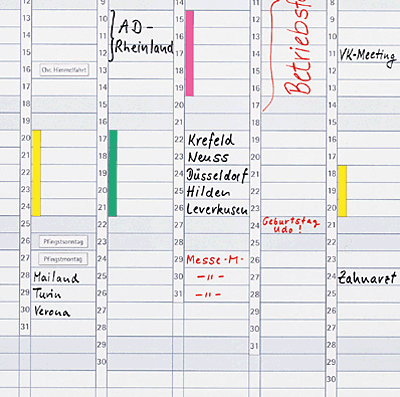 12
13
14
15
16 Chr. Himmelfahrt
17
18
19
20
21
22
23
24
25
26 Pfingstsonntag
27 Pfingstmontag
28 Mailand
29 Turin
30 Verona
31
10 AD-
11 Rheinland
12
13
14
15
16
17
18
19
20
21
22
23
24
25
26
27
28
29
30
15
16
17
18
19
20
21
22 Krefeld
23 Neuss
24 Düsseldorf
25 Hilden
26 Leverkusen
27
28
29 Messe-M-
30 -〃-
31 -〃-
12
13
14
15
16
17
18
19
20
21
22
23
24 Geburtstag Udo!
25
26
27
28
29
30
31
9
10
11 VK-Meeting
12
13
14
15
16
17
18
19
20
21
22
23
24 Zahnarzt
25
26
27
28
29
30